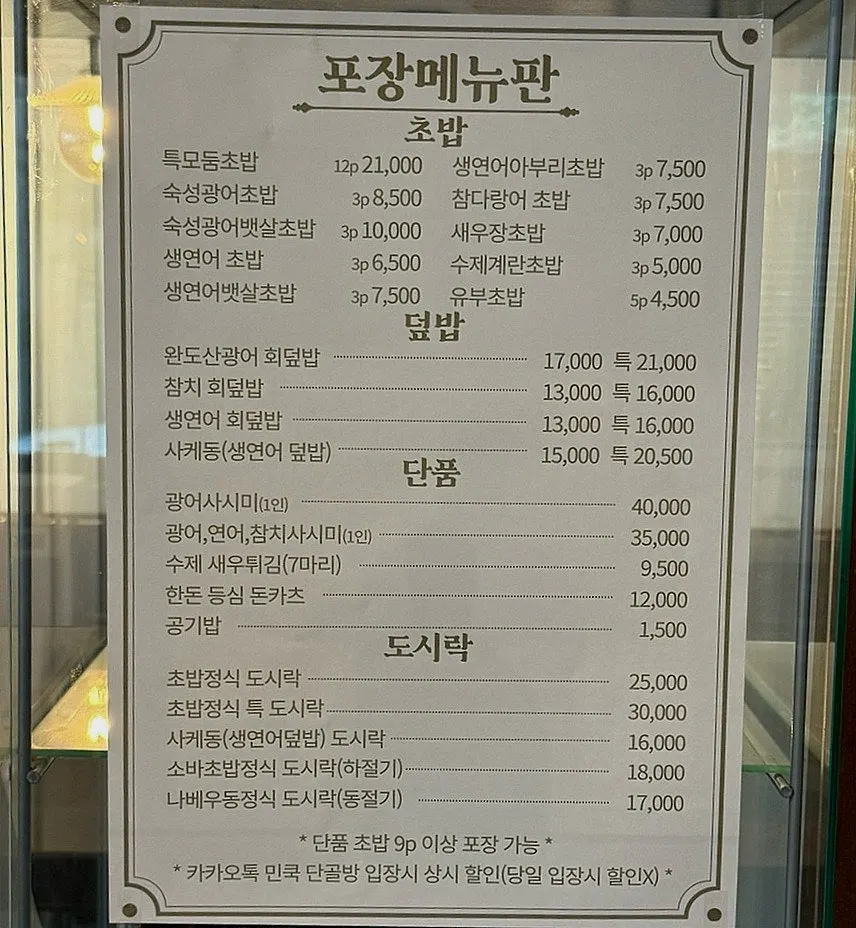 포장메뉴판
초밥
특모둠초밥 12p 21,000 생연어아부리초밥 3p 7,500
숙성광어초밥 3p 8,500 참다랑어 초밥 3p 7,500
숙성광어뱃살초밥 3p 10,000 새우장초밥 3p 7,000
생연어 초밥 3p 6,500 수제계란초밥 3p 5,000
생연어뱃살초밥 3p 7,500 유부초밥 5p 4,500
덮밥
완도산광어 회덮밥 17,000 특 21,000
참치 회덮밥 13,000 특 16,000
생연어 회덮밥 13,000 특 16,000
사케동(생연어 덮밥) 15,000 특 20,500
단품
광어사시미(1인) 40,000
광어,연어,참치사시미(1인) 35,000
수제 새우튀김(7마리) 9,500
한돈 등심 돈카츠 12,000
공기밥 1,500
도시락
초밥정식 도시락 25,000
초밥정식 특 도시락 30,000
사케동(생연어덮밥) 도시락 16,000
소바초밥정식 도시락(하절기) 18,000
나베우동정식 도시락(동절기) 17,000
* 단품 초밥 9p 이상 포장 가능 *
* 카카오톡 민쿡 단골방 입장시 상시 할인(당일 입장시 할인X) *